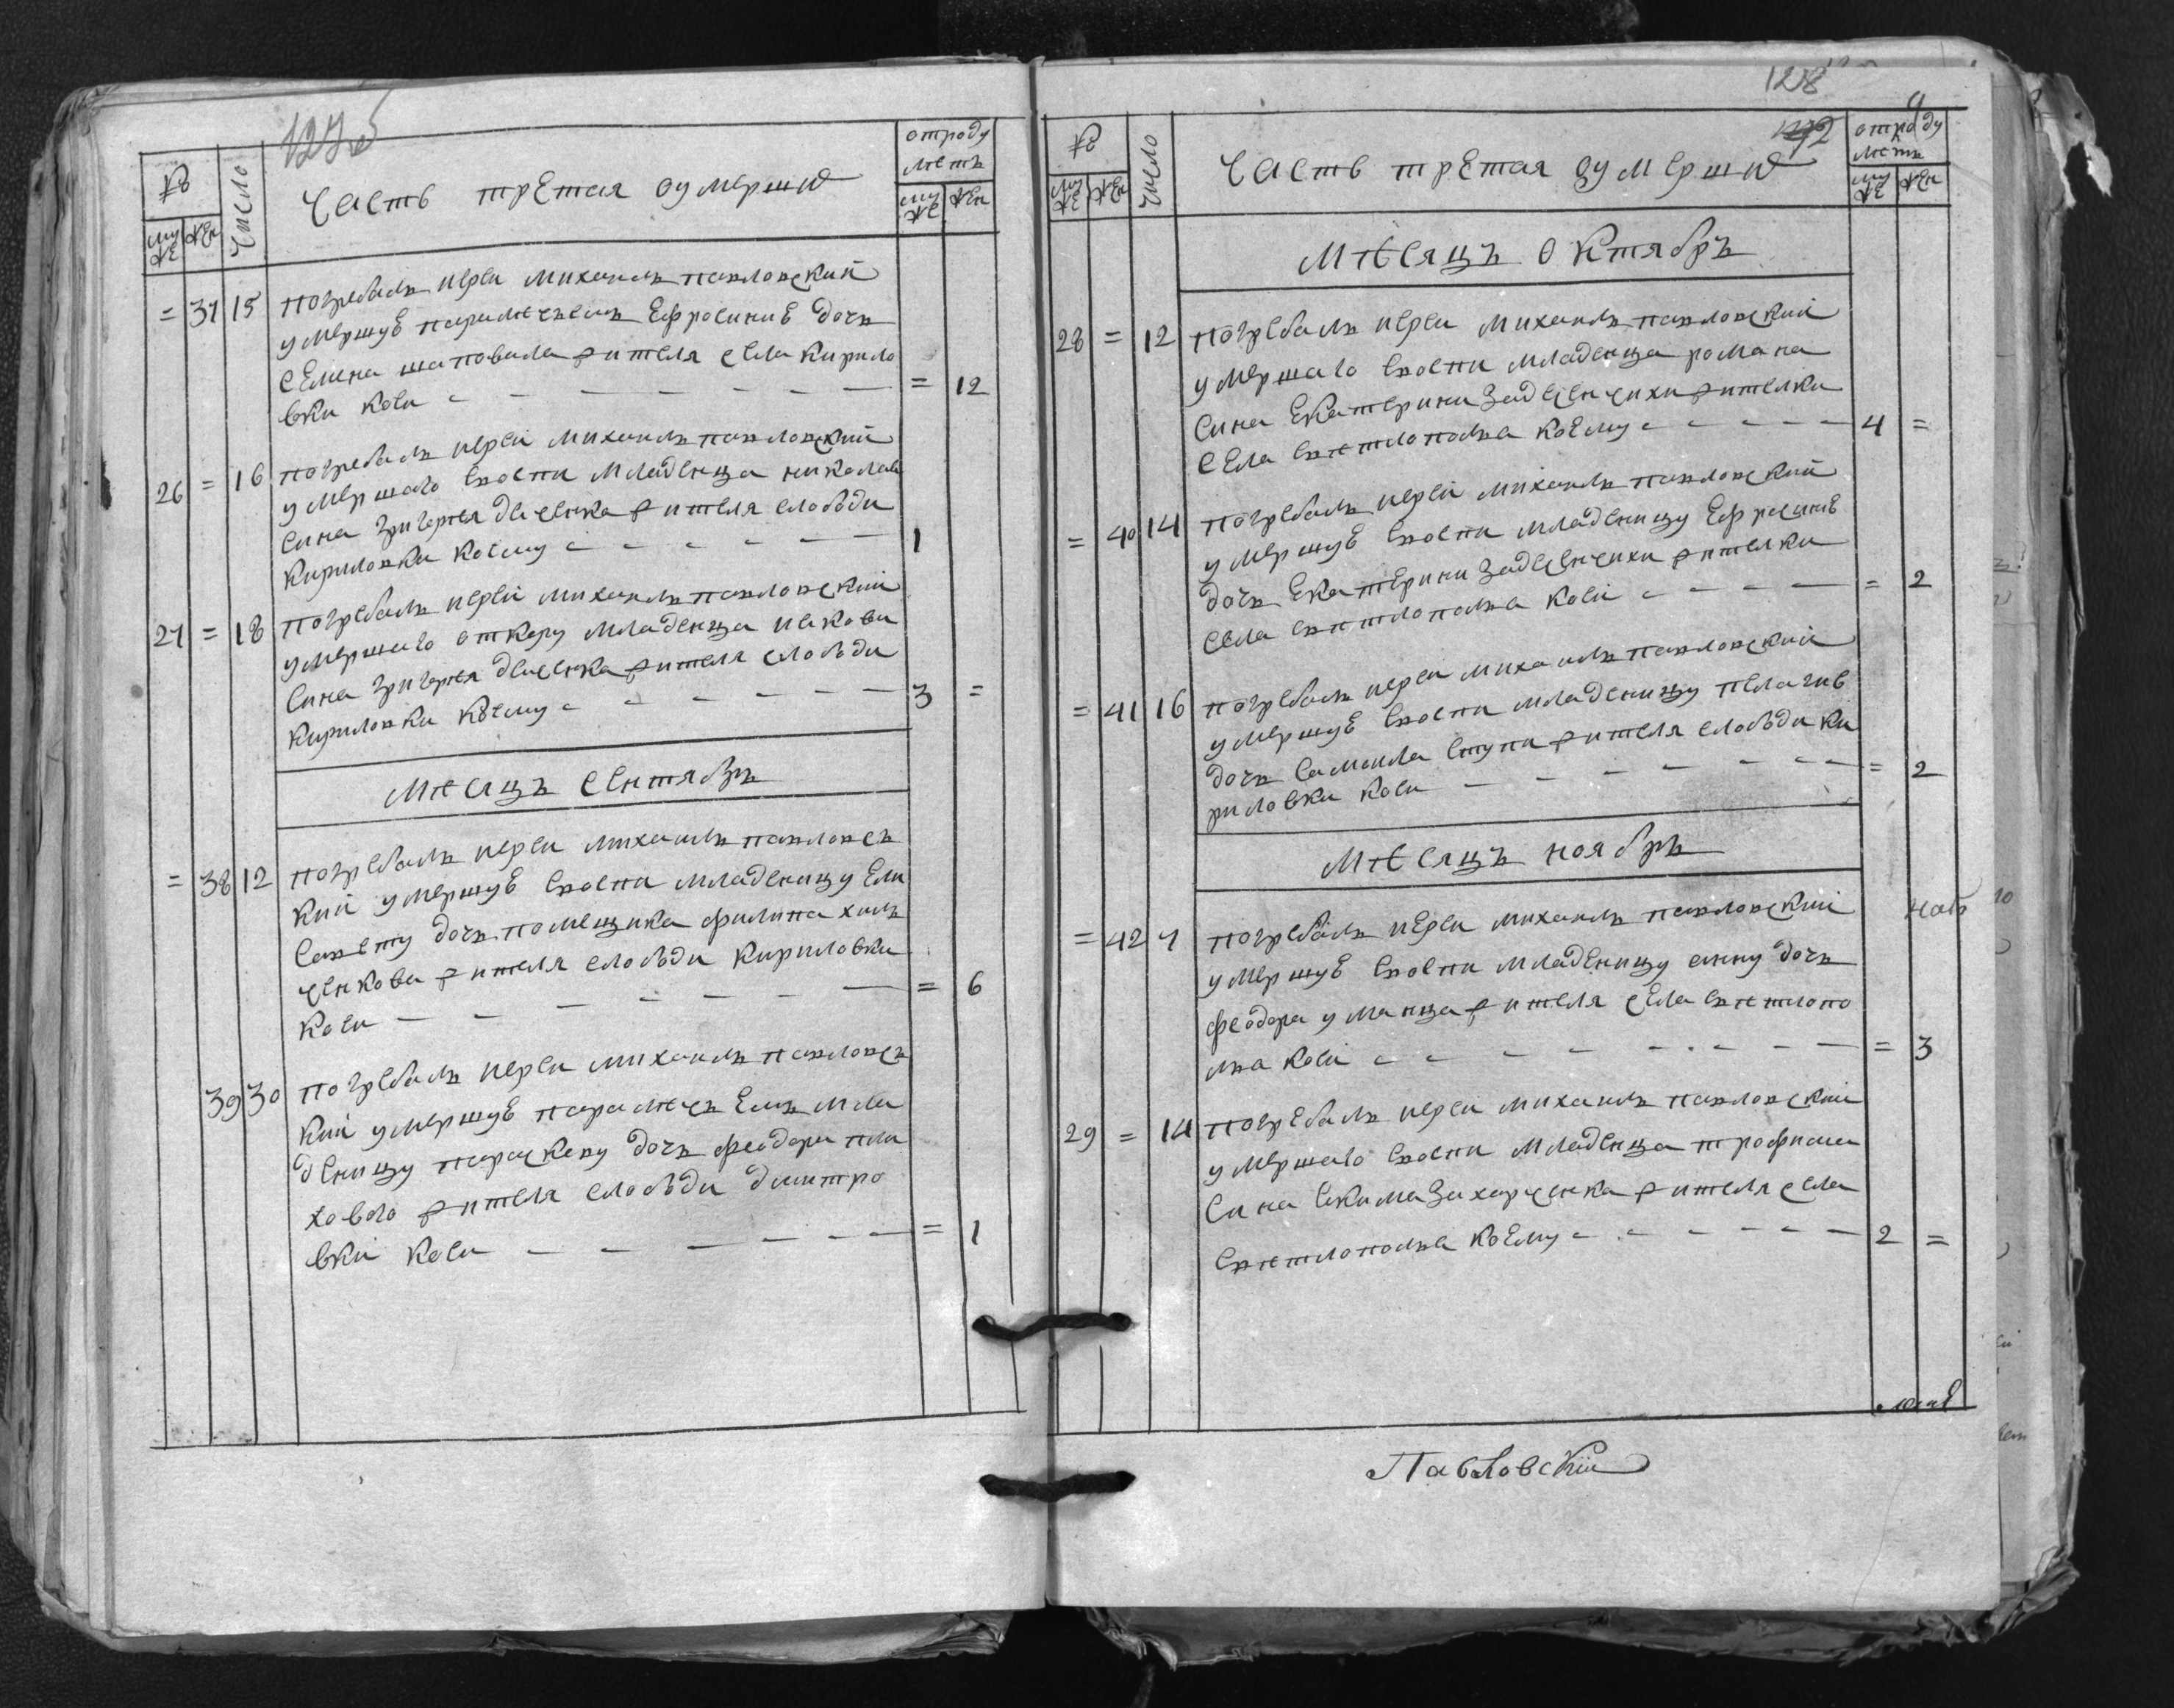 127об
№
число
Часть третая оумерши
отроду
летъ
му
же
жен
му
же
жен
= 37 15 погребалъ иереи михаилъ павловский
умершуе параличъемъ Ефросиние дочъ
Семена шаповала жителя села кирило
вки коеи = 12
26 = 16 погребалъ иереи михаилъ павловский
умершаго воспи младенца николая
сина григория жителя слободи
кириловки коему 1
27 = 18 погребалъ иереи михаилъ павловский
умершаго откору младенца иякова
сина григория жителя слободи
кириловки коему 3 =
Месяцъ сентябръ
= 38 12 погребалъ иереи михаилъ павловсъ
кий умершуе воспи младеницу Ели
савету дочъ помещика филипа химъ
ченкова жителя слободи кириловки
коеи = 6
39 30 погребалъ иереи михаилъ павловсъ
кий умершуе параличъ Емъ мла
деницу параскеву дочъ феодора пли
ховаго жителя слободи дмитро
вки коеи = 1
128
№
число
Часть третая оумерши
отроду
летъ
му
же
жен
му
же
жен
Месяцъ Октябръ
28 = 12 погребалъ иереи михаилъ павловский
умершаго воспи младенца романа
сина Екатерини задсенчихи жителки
села светлополъа коему 4 =
= 40 14 погребалъ иереи михаилъ павловский
умершуе воспи младеницу Ефросине
дочъ Екатерини задсенчихи жителки
села светлополъа коеи = 2
= 41 16 погребалъ иереи михаилъ павловский
умершуе воспи младеницу пелагие
дочъ самоила ступи жителя слободи ки
риловки коеи = 2
Месяцъ ноябръ
= 42 7 погребалъ иереи михаилъ павловский
умершуе воспи младеницу анну дочъ
феодора уманца жителя села светлопо
лъа коеи = 3
29 = 14 погребалъ иереи михаилъ павловский
умершаго воспи младенца трофима
сина екима захарченка жителя села
светлополъа коему 2 =
Павловский